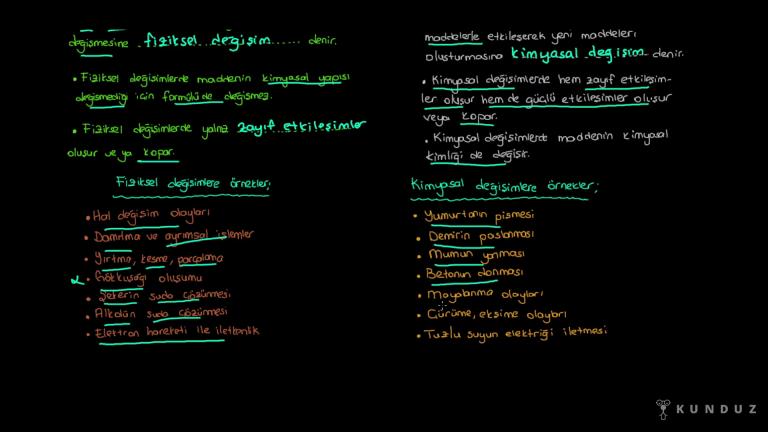 değişmesine fiziksel değişim denir.
• Fiziksel değişimlerde maddenin kimyasal yapısı
değişmediği için formülü de değişmez.
• Fiziksel değişimlerde yalnız zayıf etkileşimler
oluşur ve ya kopar.
Fiziksel değişimlere örnekler;
• Hal değişim olayları
• Damıtma ve ayrımsal işlemler
• Yırtma, kesme, parçalama
• Gökkuşağı oluşumu
• Şekerin suda çözünmesi
• Alkolün suda çözünmesi
• Elektron hareketi ile iletkenlik
maddelerle etkileşerek yeni maddeleri
oluşturmasına kimyasal değişim denir.
• Kimyasal değişimlerde hem zayıf etkileşim-
ler oluşur hem de güçlü etkileşimler oluşur
veya kopar.
• Kimyasal değişimlerde maddenin kimyasal
kimliği de değişir.
Kimyasal değişimlere örnekler;
• Yumurtanın pişmesi
• Demirin paslanması
• Mumun yanması
• Betonun donması
• Mayalanma olayları
• Çürüme, ekşime olayları
• Tuzlu suyun elektriği iletmesi
KUNDUZ